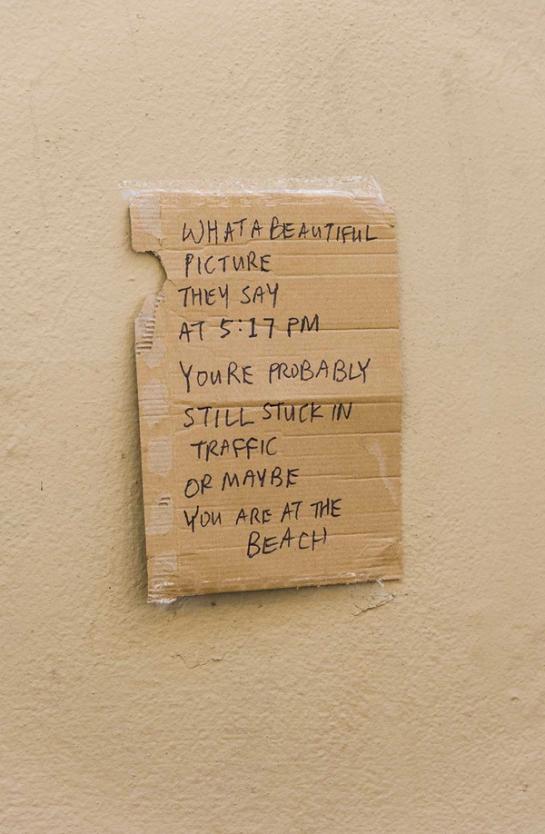 WHAT A BEAUTIFUL
PICTURE
THEY SAY
AT 5:17 PM
YOURE PROBABLY
STILL STUCK IN
TRAFFIC
OR MAYBE
YOU ARE AT THE
BEACH